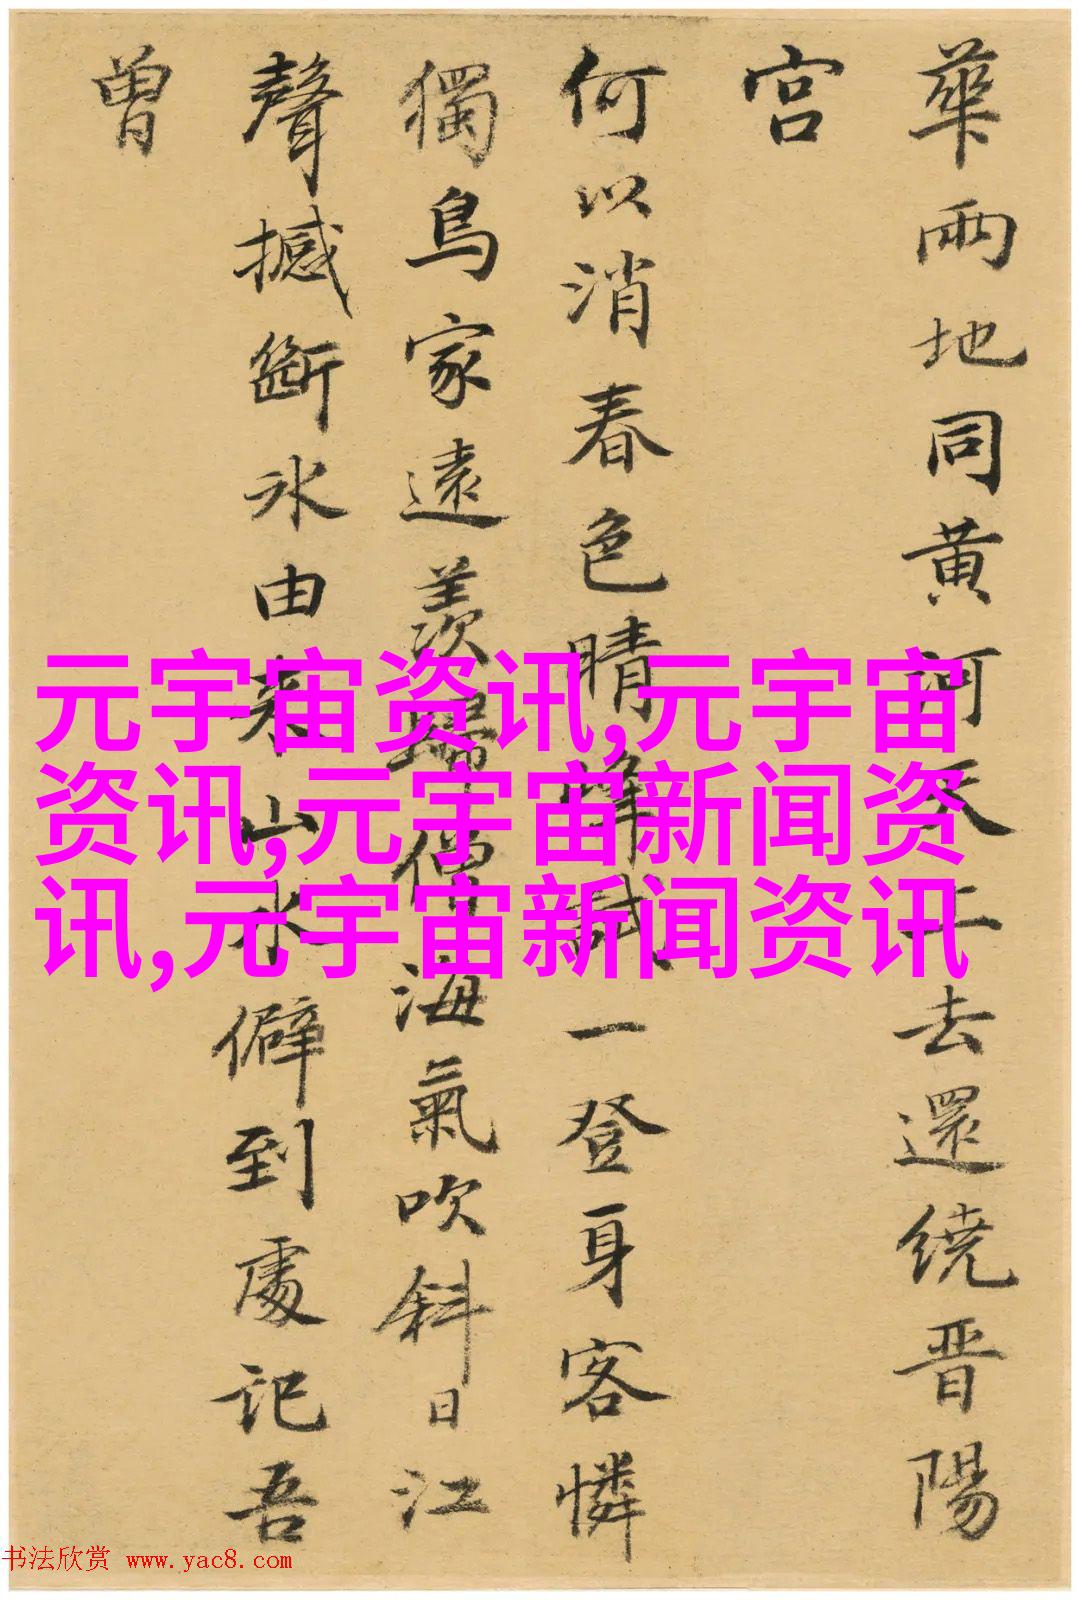 華兩地同黄河天上去還繞晋陽
宫
何以消春色晴峰試一登身客憐
獨鳥家遠羨歸僧海氣吹斜日江
聲撼斷氷由来山水僻到處記吾
曽
元宇宙资讯,元宇宙
资讯,元宇宙新闻资
讯,元宇宙新闻资讯
书法欣赏 www.yac8.com